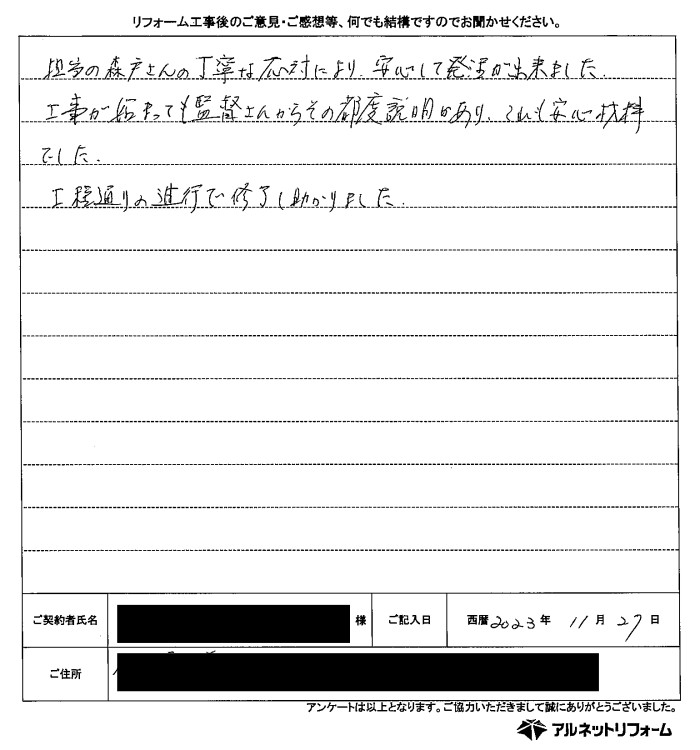 リフォーム工事後のご意見・ご感想等、何でも結構ですのでお聞かせください。
担当の森戸さんの丁寧な応対により、安心して発注が出来ました。
工事が始まっても監督さんからその都度説明があり、これも安心材料
でした。
工程通りの進行で修了し助かりました。
ご契約者氏名 様 ご記入日 西暦2023年 11月 27日
ご住所
アンケートは以上となります。ご協力いただきまして誠にありがとうございました。
アルネットリフォーム